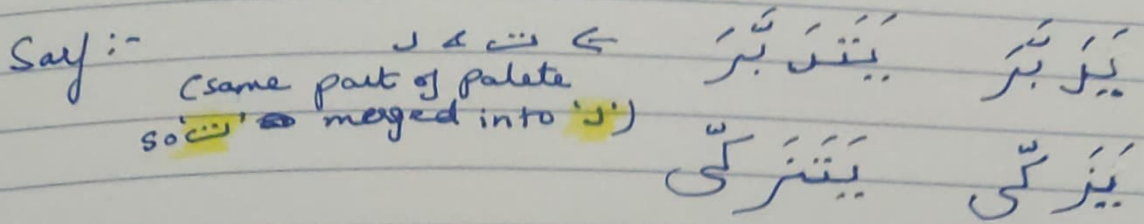 Sarf :- د & ت ← يَتَدَبَّرَ يَدَبَّرَ
(same part of palete
so 'ت' merged into 'د')
يَتَزَكّى يَزَكّى